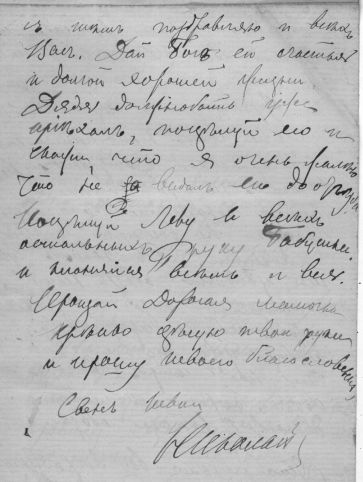 съ нимъ поздравляю и всѣхъ
Васъ. Дай Богъ ей счастья
и долгой хорошей жизни.
Дядя должно быть уже
пріѣхалъ, поцѣлуй его и
скажи что я очень жалѣю
что не видалъ его
Поцѣлуй Леву и всѣхъ
остальныхъ руку бабушки
и кланяйся всѣмъ и вся.
Прощай дорогая мамочка
крѣпко цѣлую твои руки
и прошу твоего благословенія,
Сынъ твой
Николай